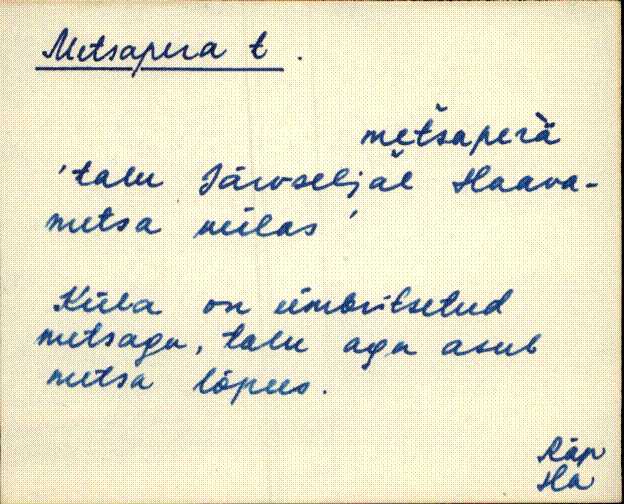 Metsapera t.
metšaperä
'talu Järvseljal Haava-
metsa veilas'
Küla on ümbritsetud
metsaga, talu aga asub
metsa lõpus.
Räp
Ha